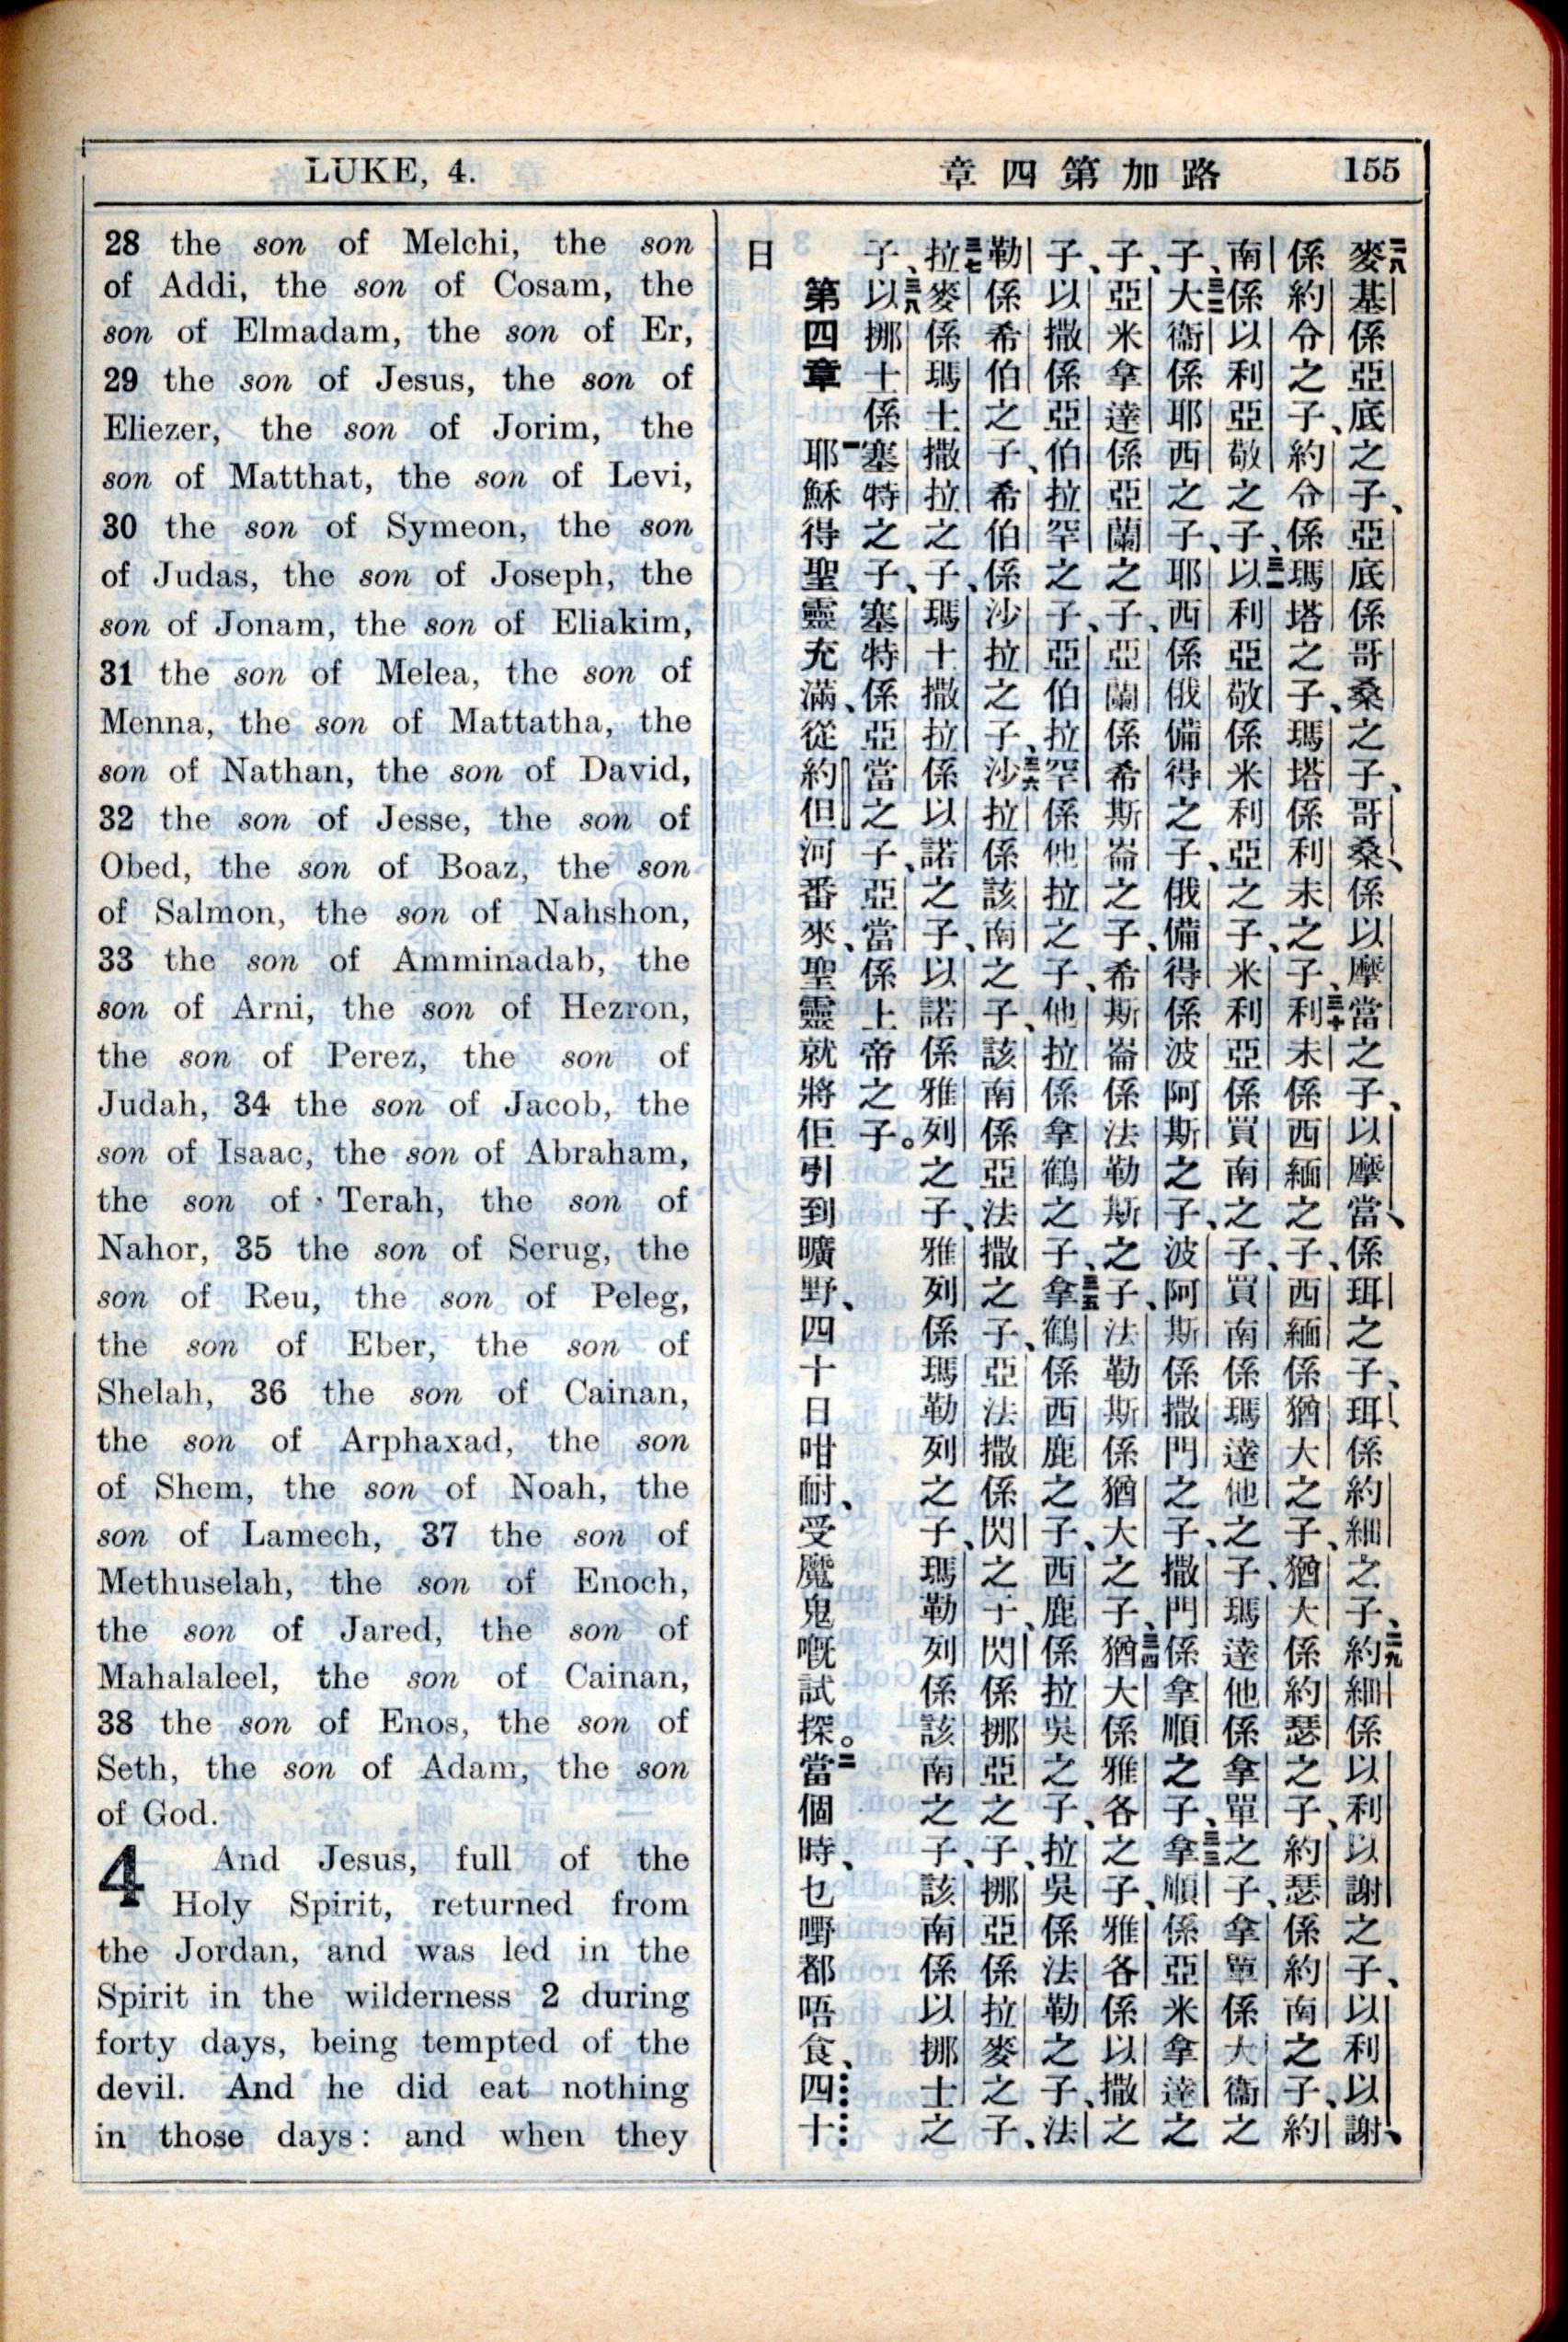 LUKE, 4.
路加第四章
155
28 the son of Melchi, the son
of Addi, the son of Cosam, the
son of Elmadam, the son of Er,
29 the son of Jesus, the son of
Eliezer, the son of Jorim, the
son of Matthat, the son of Levi,
30 the son of Symeon, the son
of Judas, the son of Joseph, the
son of Jonam, the son of Eliakim,
31 the son of Melea, the son of
Menna, the son of Mattatha, the
son of Nathan, the son of David,
32 the son of Jesse, the son of
Obed, the son of Boaz, the son
of Salmon, the son of Nahshon,
33 the son of Amminadab, the
son of Arni, the son of Hezron,
the son of Perez, the son of
Judah, 34 the son of Jacob, the
son of Isaac, the son of Abraham,
the son of Terah, the son of
Nahor, 35 the son of Serug, the
son of Reu, the son of Peleg,
the son of Eber, the son of
Shelah, 36 the son of Cainan,
the son of Arphaxad, the son
of Shem, the son of Noah, the
son of Lamech, 37 the son of
Methuselah, the son of Enoch,
the son of Jared, the son of
Mahalaleel, the son of Cainan,
38 the son of Enos, the son of
Seth, the son of Adam, the son
of God.
4 And Jesus, full of the
Holy Spirit, returned from
the Jordan, and was led in the
Spirit in the wilderness 2 during
forty days, being tempted of the
devil. And he did eat nothing
in those days: and when they
二八麥基係亞底之子、亞底係哥桑之子、哥桑、係以摩當之子、以摩當、係珥之子、珥、係約細之子、二九約細係以利以謝之子、以利以謝、
係約令之子、約令係瑪塔之子、瑪塔係利未之子、三十利未係西緬之子、西緬係猶大之子、猶大係約瑟之子、約瑟係約南之子、約
南係以利亞敬之子、三一以利亞敬係米利亞之子、米利亞係買南之子、買南係瑪達他之子、瑪達他係拿單之子、拿單係大衞之
子、三二大衞係耶西之子、耶西係俄備得之子、俄備得係波阿斯之子、波阿斯係撒門之子、撒門係拿順之子、三三拿順係亞米拿達之
子、亞米拿達係亞蘭之子、亞蘭係希斯崙之子、希斯崙係法勒斯之子、法勒斯係猶大之子、三四猶大係雅各之子、雅各係以撒之
子、以撒係亞伯拉罕之子、亞伯拉罕係他拉之子、他拉係拿鶴之子、三五拿鶴係西鹿之子、西鹿係拉吳之子、拉吳係法勒之子、法
勒係希伯之子、希伯係沙拉之子、三六沙拉係該南之子、該南係亞法撒之子、亞法撒係閃之子、閃係挪亞之子、挪亞係拉麥之子、
三七拉麥係瑪土撒拉之子、瑪土撒拉係以諾之子、以諾係雅列之子、雅列係瑪勒列之子、瑪勒列係該南之子、該南係以挪士之
子、三八以挪士係塞特之子、塞特係亞當之子、亞當係上帝之子。
第四章 一耶穌得聖靈充滿、從約但河番來、聖靈就將佢引到曠野、四十日咁耐、受魔鬼嘅試探。二當個時、乜嘢都唔食、四十
日